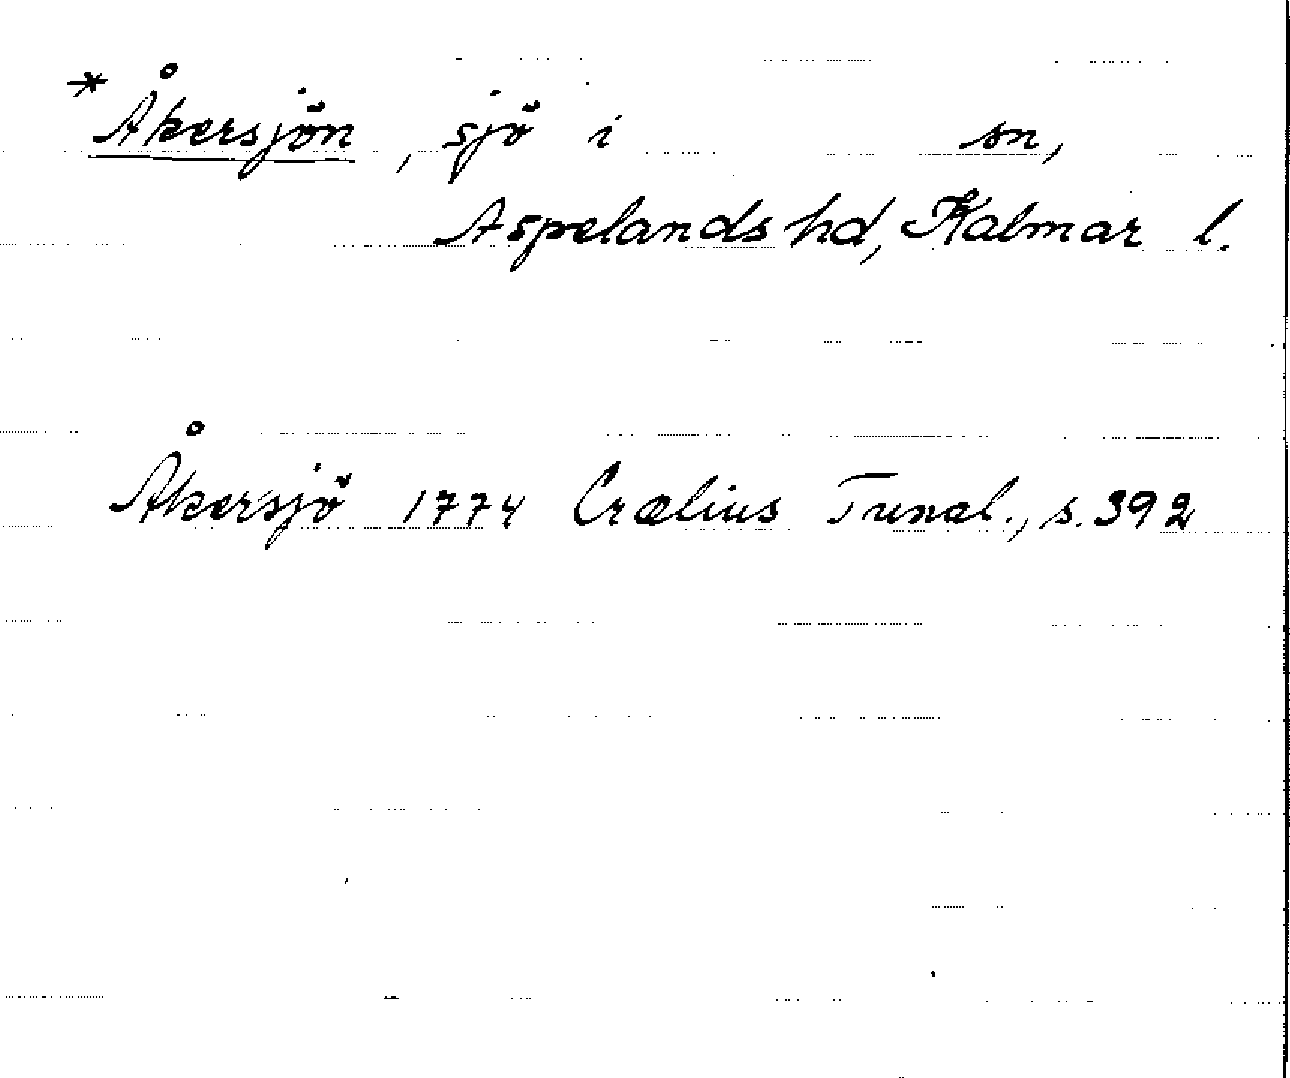 *Åkersjön, sjö i sn,
Aspelands hd, Kalmar l.
Åkersjö 1774 Crælius Tunal., s. 392